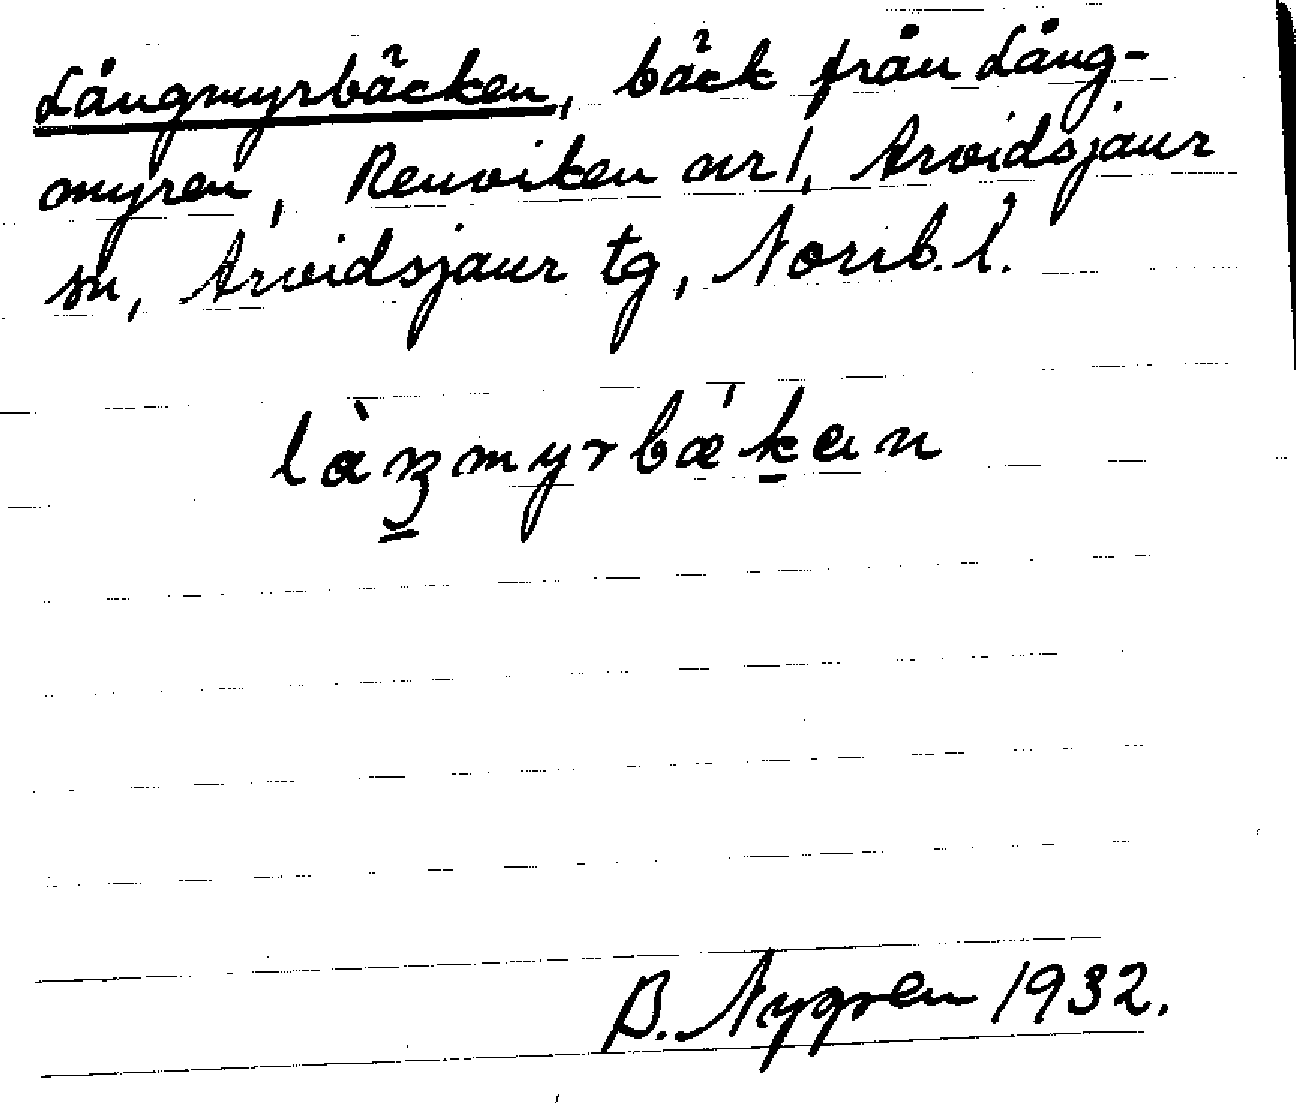 Långmyrbäcken, bäck från Lång-
myren, Renviken nr 1, Arvidsjaur
sn, Arvidsjaur tg, Norrb. l.
B. Nygren 1932.